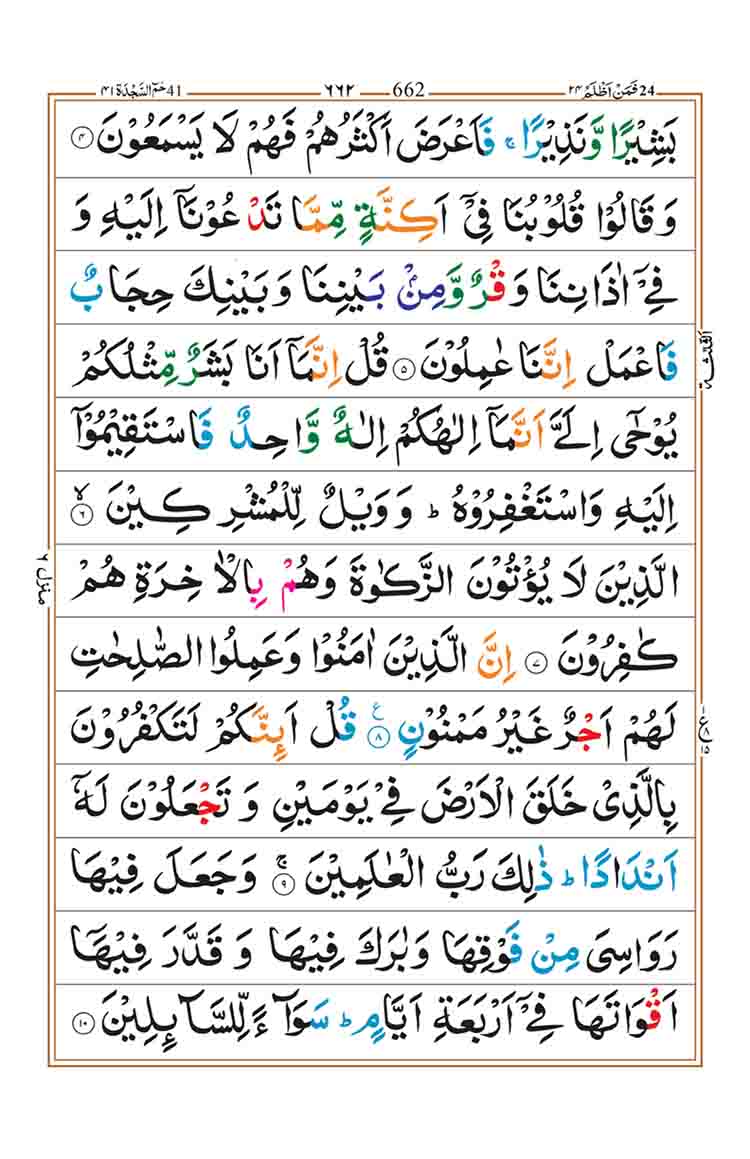 41 حٰمٓ السَّجْدَة ٤١ ٦٦٢ 662 فَمَنْ اَظْلَمُ ٢٤ 24
بَشِيْرًا وَّنَذِيْرًا ۚ فَاَعْرَضَ اَكْثَرُهُمْ فَهُمْ لَا يَسْمَعُوْنَ ۴
وَ قَالُوْا قُلُوْبُنَا فِيْۤ اَكِنَّةٍ مِّمَّا تَدْعُوْنَاۤ اِلَيْهِ وَ
فِيْۤ اٰذَانِنَا وَقْرٌ وَّمِنْۢ بَيْنِنَا وَبَيْنِكَ حِجَابٌ
فَاعْمَلْ اِنَّنَا عٰمِلُوْنَ ۵ قُلْ اِنَّمَاۤ اَنَا بَشَرٌ مِّثْلُكُمْ
يُوْحٰۤى اِلَيَّ اَنَّمَاۤ اِلٰهُكُمْ اِلٰهٌ وَّاحِدٌ فَاسْتَقِيْمُوْۤا
اِلَيْهِ وَاسْتَغْفِرُوْهُ ؕ وَوَيْلٌ لِّلْمُشْرِكِيْنَ ۙ ۶
الَّذِيْنَ لَا يُؤْتُوْنَ الزَّكٰوةَ وَهُمْ بِالْاٰخِرَةِ هُمْ
كٰفِرُوْنَ ۷ اِنَّ الَّذِيْنَ اٰمَنُوْا وَعَمِلُوا الصّٰلِحٰتِ
لَهُمْ اَجْرٌ غَيْرُ مَمْنُوْنٍ ۸ ع قُلْ اَىِٕنَّكُمْ لَتَكْفُرُوْنَ
بِالَّذِيْ خَلَقَ الْاَرْضَ فِيْ يَوْمَيْنِ وَ تَجْعَلُوْنَ لَهٗۤ
اَنْدَادًا ؕ ذٰلِكَ رَبُّ الْعٰلَمِيْنَ ۚ ۹ وَجَعَلَ فِيْهَا
رَوَاسِيَ مِنْ فَوْقِهَا وَبٰرَكَ فِيْهَا وَ قَدَّرَ فِيْهَاۤ
اَقْوَاتَهَا فِيْۤ اَرْبَعَةِ اَيَّامٍ ؕ سَوَآءً لِّلسَّآىِٕلِيْنَ ۱۰
الثلثة
منزل ۶
ع ۸ ۱۵